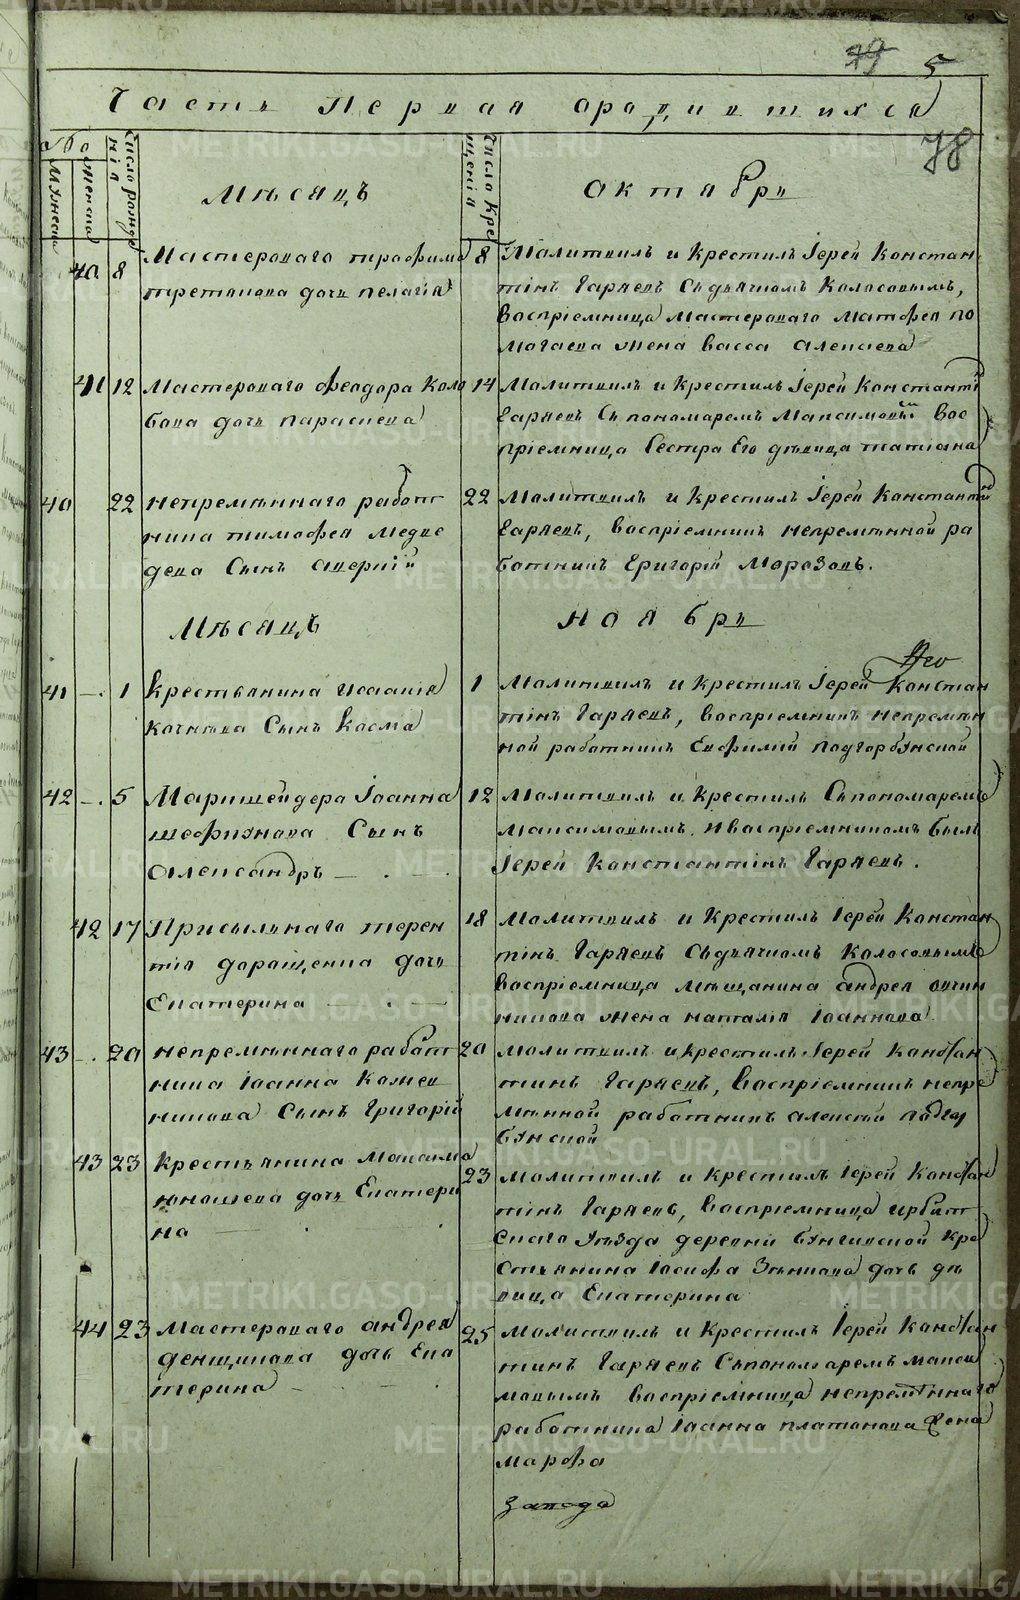 79 5
Часть Первая ородившихся
78
No
Мужеска
Женска
Число рожде
нія
Число Кре
щенія
Мѣсяцъ
Октябрь
40 8 Мастероваго трофима
третьякова дочь пелагія
8 Молитвилъ и Крестилъ Іерей Констан
тинъ Гаряевъ Съ дьячкомъ Колосовымъ,
Воспріемница Мастероваго Матфея по
могаева жена васса алексеева
41 12 Мастероваго феодора Коло
бова дочь параскева
14 Молитвилъ и Крестилъ Іерей Константі
Гаряевъ Съ пономаремъ Максимовым Вос
пріемница Сестра Его дѣвица татіана
40 22 непремѣннаго работ
ника тимофея медве
дева Сынъ аверкій
22 Молитвилъ и Крестилъ Іерей Константі
Гаряевъ, воспріемникъ непремѣнной ра
ботникъ Григорій Морозовъ.
Мѣсяцъ
ноябрь
41 1 Крестьянина исаакія
кочнева Сынъ Косма
1 Молитвилъ и Крестилъ Іерей Констан
тінъ Гаряевъ, воспріемникъ непремѣн
ной работникъ Евфимій подгорбунской
42 5 Маркшейдера Іоанна
Сынъ
Александръ
12 Молитвилъ и Крестилъ Съ пономаремъ
Максимовымъ. И воспріемникомъ былъ
Іерей Константінъ Гаряевъ.
42 17 Присыльнаго терен
тія доращенка дочь
Екатерина
18 Молитвилъ и Крестилъ Іерей Констан
тінъ Гаряевъ Съ дьячкомъ Колосовымъ
воспріемница мѣщанина андрея овчин
никова жена наталія Іоаннова
43 20 непремѣннаго работ
ника Іоанна Кожев
никова Сынъ Григорій
20 Молитвилъ и крестилъ Іерей Констан
тинъ Гаряевъ, Воспріемникъ непре
мѣнной работникъ алексѣй подгор
бунской
43 23 Крестьянина Максима
юношева дочь Екатери
на
23 Молитвилъ и Крестилъ Іерей Констан
тінъ Гаряевъ, Воспріемница ирбит
скаго уѣзда деревни Крe
стьянина іосифа Зенкова дочь дѣ
вица Екатерина
44 23 Мастероваго андрея
денщикова дочь Ека
терина
25 Молитвилъ и Крестилъ Іерей Констан
тинъ Гаряевъ Съ пономаремъ макси
мовымъ воспріемница непремѣннаго
работника Іоанна платонова жена
марфа